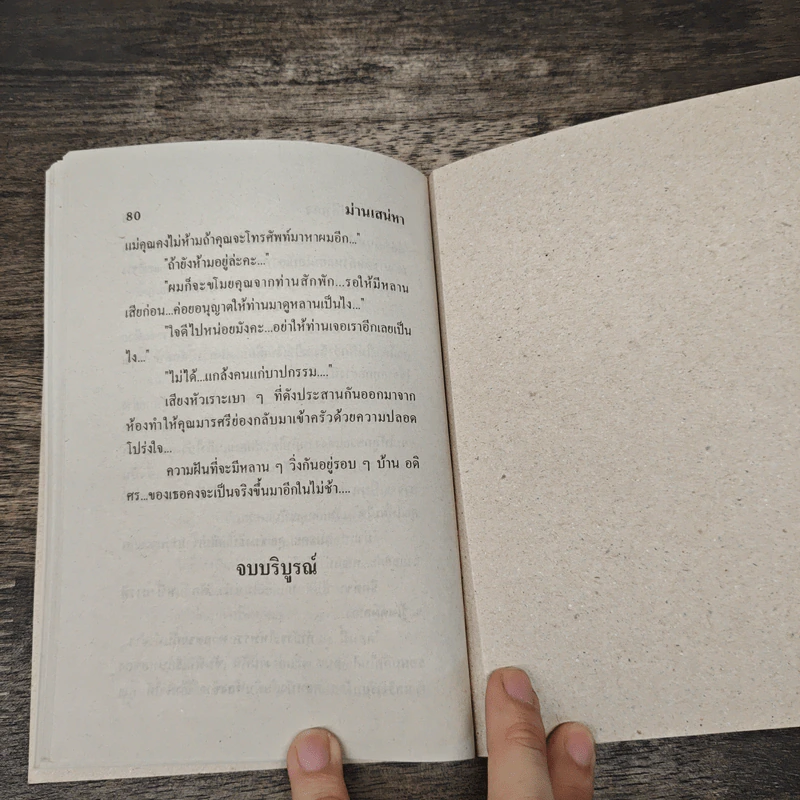 80 ม่านเสน่หา
แม่คุณคงไม่ห้ามถ้าคุณจะโทรศัพท์มาหาผมอีก..."
"ถ้ายังห้ามอยู่ล่ะคะ..."
"ผมก็จะขโมยคุณจากท่านสักพัก...รอให้มีหลาน
เสียก่อน...ค่อยอนุญาตให้ท่านมาดูหลานเป็นไง..."
"ใจดีไปหน่อยมังคะ...อย่าให้ท่านเจอเราอีกเลยเป็น
ไง..."
"ไม่ได้...แกล้งคนแก่บาปกรรม...."
เสียงหัวเราะเบา ๆ ที่ดังประสานกันออกมาจาก
ห้องทำให้คุณมารศรีย่องกลับมาเข้าครัวด้วยความปลอด
โปร่งใจ...
ความฝันที่จะมีหลาน ๆ วิ่งกันอยู่รอบ ๆ บ้าน อดิ
ศร...ของเธอคงจะเป็นจริงขึ้นมาอีกในไม่ช้า....
จบบริบูรณ์